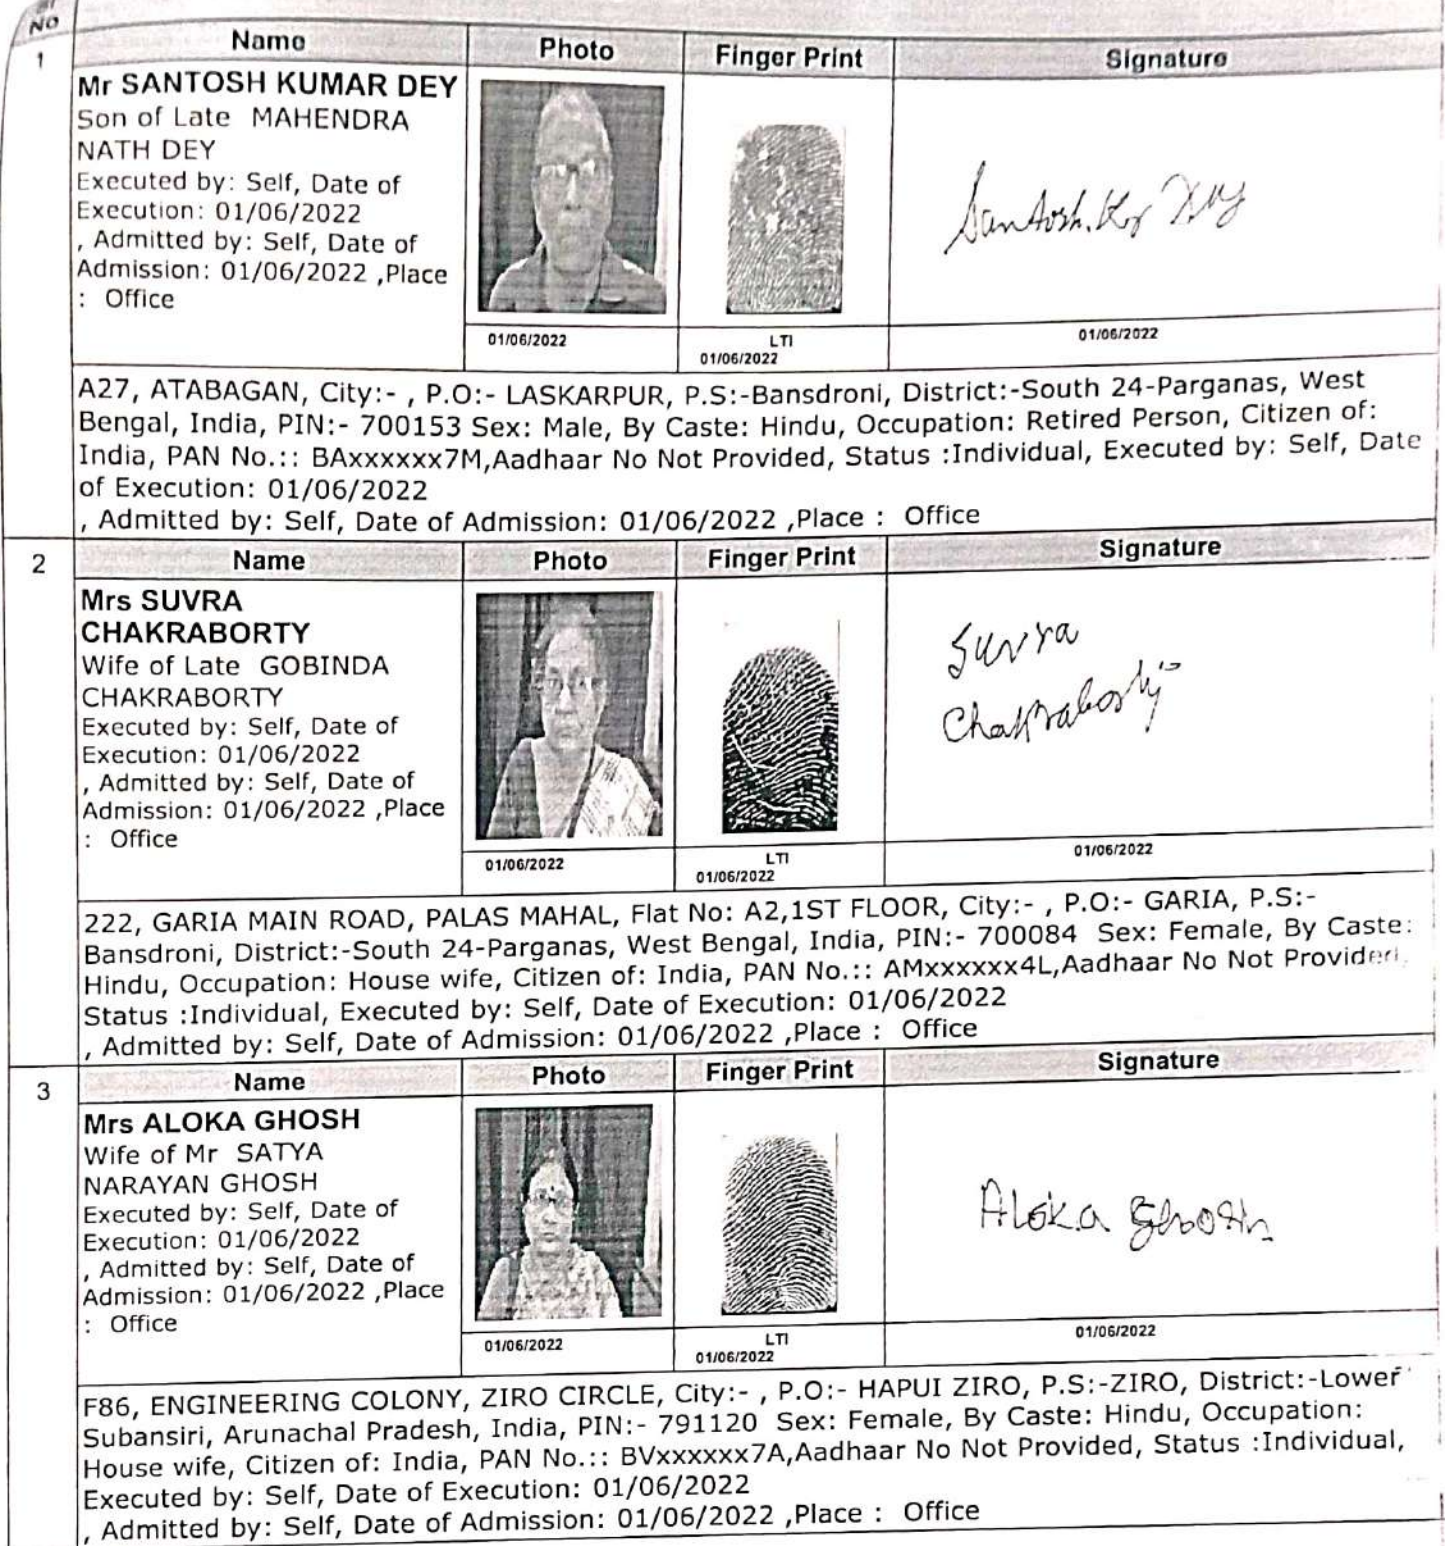 Sl
No
Name Photo Finger Print Signature
1
Mr SANTOSH KUMAR DEY
Son of Late MAHENDRA
NATH DEY
Executed by: Self, Date of
Execution: 01/06/2022
, Admitted by: Self, Date of
Admission: 01/06/2022 ,Place
: Office
Santosh. Kr Dey
01/06/2022
LTI
01/06/2022
01/06/2022
A27, ATABAGAN, City:- , P.O:- LASKARPUR, P.S:-Bansdroni, District:-South 24-Parganas, West
Bengal, India, PIN:- 700153 Sex: Male, By Caste: Hindu, Occupation: Retired Person, Citizen of:
India, PAN No.:: BAxxxxxx7M,Aadhaar No Not Provided, Status :Individual, Executed by: Self, Date
of Execution: 01/06/2022
, Admitted by: Self, Date of Admission: 01/06/2022 ,Place : Office
2
Name Photo Finger Print Signature
Mrs SUVRA
CHAKRABORTY
Wife of Late GOBINDA
CHAKRABORTY
Executed by: Self, Date of
Execution: 01/06/2022
, Admitted by: Self, Date of
Admission: 01/06/2022 ,Place
: Office
Suvra
Chakraborty
01/06/2022
LTI
01/06/2022
01/06/2022
222, GARIA MAIN ROAD, PALAS MAHAL, Flat No: A2,1ST FLOOR, City:- , P.O:- GARIA, P.S:-
Bansdroni, District:-South 24-Parganas, West Bengal, India, PIN:- 700084 Sex: Female, By Caste:
Hindu, Occupation: House wife, Citizen of: India, PAN No.:: AMxxxxxx4L,Aadhaar No Not Provided,
Status :Individual, Executed by: Self, Date of Execution: 01/06/2022
, Admitted by: Self, Date of Admission: 01/06/2022 ,Place : Office
3
Name Photo Finger Print Signature
Mrs ALOKA GHOSH
Wife of Mr SATYA
NARAYAN GHOSH
Executed by: Self, Date of
Execution: 01/06/2022
, Admitted by: Self, Date of
Admission: 01/06/2022 ,Place
: Office
Aloka Ghosh
01/06/2022
LTI
01/06/2022
01/06/2022
F86, ENGINEERING COLONY, ZIRO CIRCLE, City:- , P.O:- HAPUI ZIRO, P.S:-ZIRO, District:-Lower
Subansiri, Arunachal Pradesh, India, PIN:- 791120 Sex: Female, By Caste: Hindu, Occupation:
House wife, Citizen of: India, PAN No.:: BVxxxxxx7A,Aadhaar No Not Provided, Status :Individual,
Executed by: Self, Date of Execution: 01/06/2022
, Admitted by: Self, Date of Admission: 01/06/2022 ,Place : Office